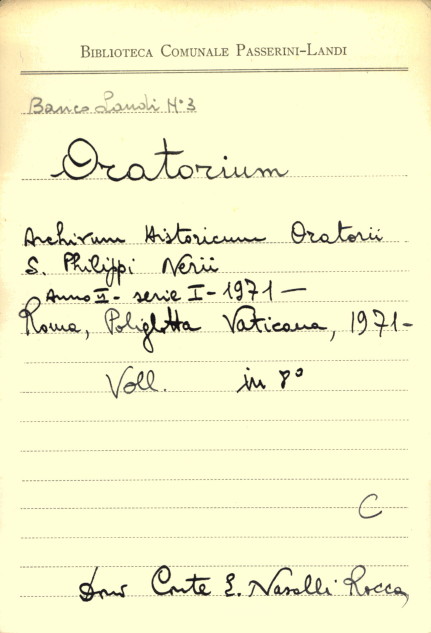 BIBLIOTECA COMUNALE PASSERINI-LANDI
Banco Landi N.3
Oratorium
Archivum Historicum Oratorii
S. Philippi Nerii
Anno II - serie I - 1971 —
Roma, Poliglotta Vaticana, 1971 -
Voll. in 8°
C
Dono Conte E. Nasalli Rocca